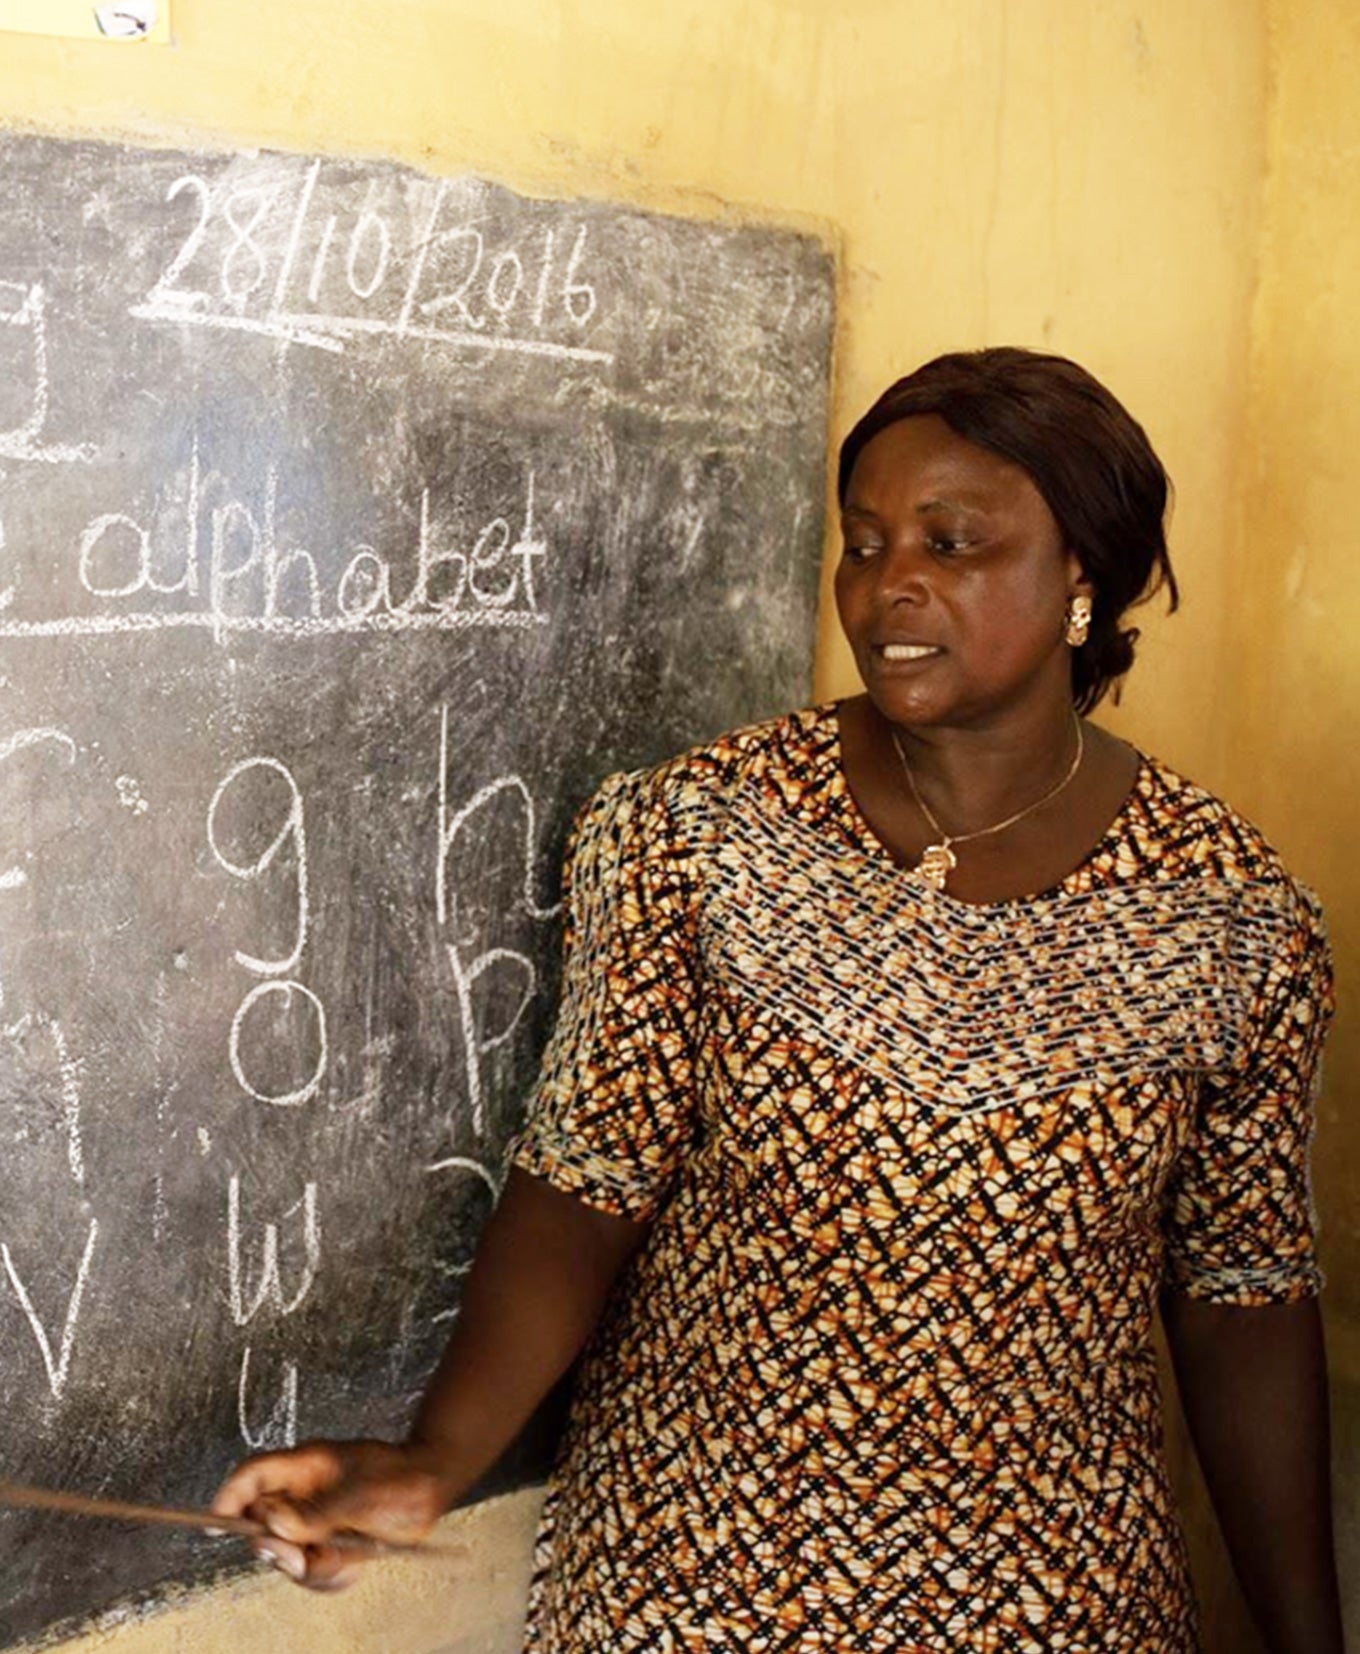 28/10/2016
alphabet
g h
n o p
v w
y